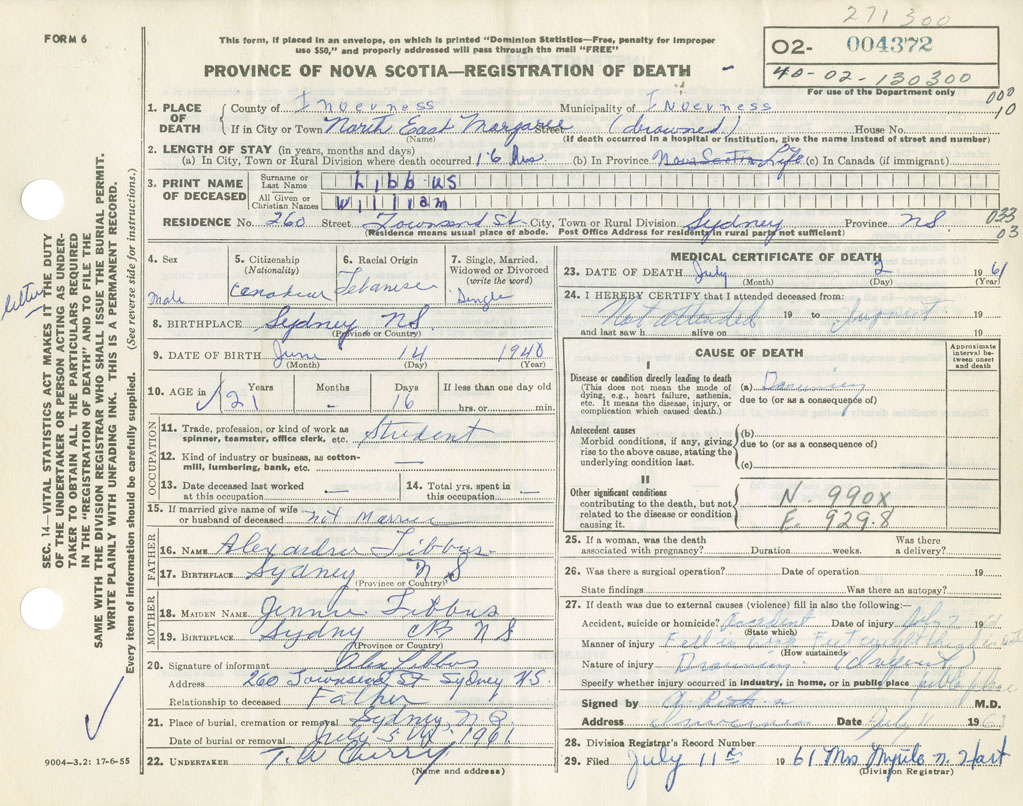 271 300
FORM 6
This form, if placed in an envelope, on which is printed "Dominion Statistics—Free, penalty for improper
use $50," and properly addressed will pass through the mail "FREE"
PROVINCE OF NOVA SCOTIA—REGISTRATION OF DEATH
02- 004372
40-02-130300
For use of the Department only
000
10
1. PLACE OF DEATH
County of Inverness Municipality of Inverness
If in City or Town North East Margaree Street (drowned) House No.
(Name) (If death occurred in a hospital or institution, give the name instead of street and number)
2. LENGTH OF STAY (in years, months and days)
(a) In City, Town or Rural Division where death occurred 16 hrs. (b) In Province Nova Scotia Life (c) In Canada (if immigrant)
3. PRINT NAME OF DECEASED
Surname or Last Name Libbus
All Given or Christian Names William
RESIDENCE No. 260 Street Townsend St City, Town or Rural Division Sydney Province NS
(Residence means usual place of abode. Post Office Address for residents in rural parts not sufficient)
033
03
4. Sex
Male
5. Citizenship (Nationality)
Canadian
6. Racial Origin
Lebanese
7. Single, Married, Widowed or Divorced (write the word)
Single
8. BIRTHPLACE Sydney NS.
(Province or Country)
9. DATE OF BIRTH June 14 1940
(Month) (Day) (Year)
10. AGE in
Years Months Days If less than one day old
21 - 16 hrs. or min.
OCCUPATION
11. Trade, profession, or kind of work as spinner, teamster, office clerk, etc. Student
12. Kind of industry or business, as cotton-mill, lumbering, bank, etc. —
13. Date deceased last worked at this occupation —
14. Total yrs. spent in this occupation —
15. If married give name of wife or husband of deceased not Married
FATHER
16. NAME Alexander Libbus
17. BIRTHPLACE Sydney NS
(Province or Country)
MOTHER
18. MAIDEN NAME Jennie Libbus
19. BIRTHPLACE Sydny CB NS
(Province or Country)
20. Signature of informant Alex Libbus
Address 260 Townsend St Sydney N.S.
Relationship to deceased Father
21. Place of burial, cremation or removal Sydney, N.S.
Date of burial or removal July 5 1961
22. UNDERTAKER T. W Curry
(Name and address)
MEDICAL CERTIFICATE OF DEATH
23. DATE OF DEATH July 2 1961
(Month) (Day) (Year)
24. I HEREBY CERTIFY that I attended deceased from:
Not attended 19 to Inquest 19
and last saw h alive on 19
CAUSE OF DEATH
Approximate interval between onset and death
I
Disease or condition directly leading to death
(This does not mean the mode of dying, e.g., heart failure, asthenia, etc. It means the disease, injury, or complication which caused death.)
(a) Drowning
due to (or as a consequence of)
Antecedent causes
Morbid conditions, if any, giving rise to the above cause, stating the underlying condition last.
(b)
due to (or as a consequence of)
(c)
II
Other significant conditions
contributing to the death, but not related to the disease or condition causing it.
N. 990X
E. 929.8
25. If a woman, was the death associated with pregnancy? Duration weeks. Was there a delivery?
26. Was there a surgical operation? Date of operation 19
State findings Was there an autopsy?
27. If death was due to external causes (violence) fill in also the following:—
Accident, suicide or homicide? Accident Date of injury July 2 19
(State which)
Manner of injury Fell in
(How sustained)
Nature of injury Drowning
Specify whether injury occurred in industry, in home, or in public place public place
Signed by M.D.
Address Inverness Date July 11 1961
28. Division Registrar's Record Number
29. Filed July 11th 1961 Mrs Myrtle N. Hart
(Division Registrar)
SEC. 14—VITAL STATISTICS ACT MAKES IT THE DUTY
OF THE UNDERTAKER OR PERSON ACTING AS UNDER-
TAKER TO OBTAIN ALL THE PARTICULARS REQUIRED
IN THE "REGISTRATION OF DEATH" AND TO FILE THE
SAME WITH THE DIVISION REGISTRAR WHO SHALL ISSUE THE BURIAL PERMIT.
WRITE PLAINLY WITH UNFADING INK. THIS IS A PERMANENT RECORD.
Every item of information should be carefully supplied. (See reverse side for instructions.)
letter
9004-3.2: 17-6-55